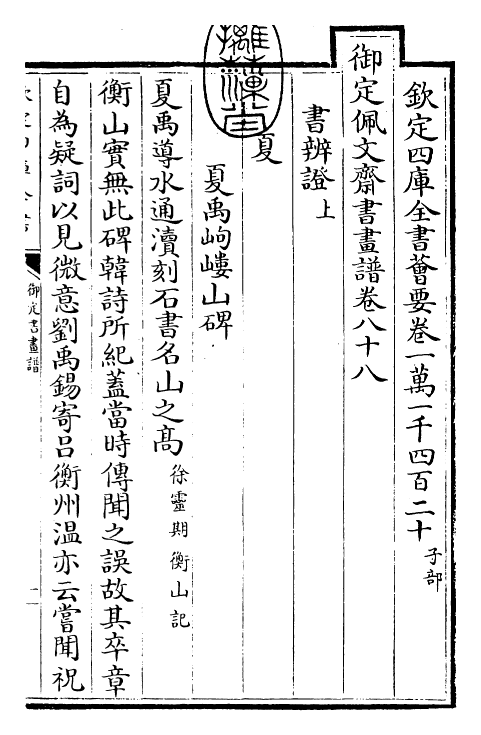 欽定四庫全書薈要卷一萬一千四百二十 子部
御定佩文齋書畫譜卷八十八
書辨證上
夏
夏禹岣嶁山碑
夏禹導水通瀆刻石書名山之髙 徐靈期衡山記
衡山實無此碑韓詩所紀蓋當時傳聞之誤故其卒章
自為疑詞以見微意劉禹錫寄吕衡州温亦云嘗聞祝
御定書畫譜